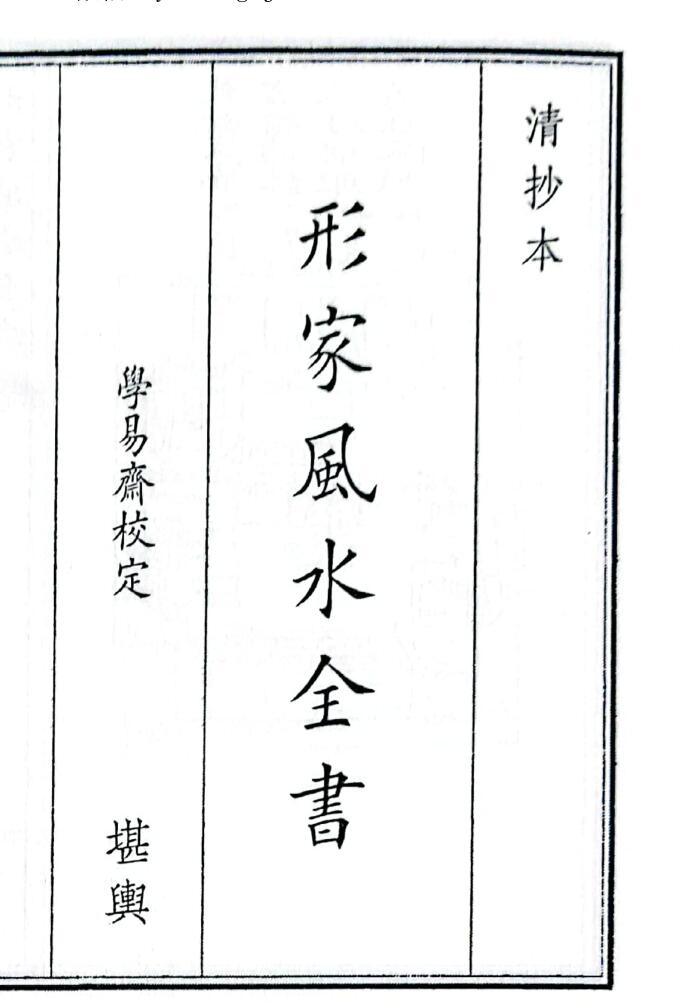 清抄本
形家風水全書
學易齋校定
堪輿